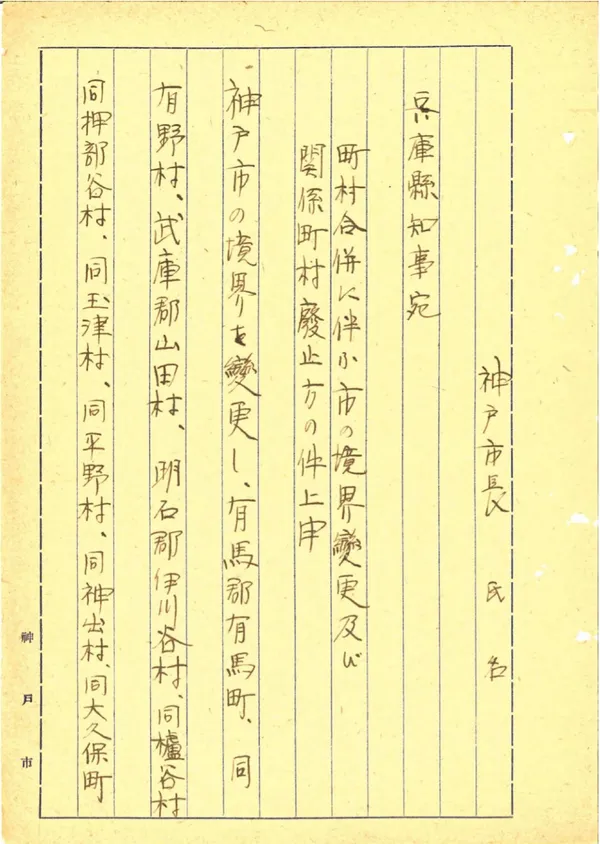 神戸市長　氏名
兵庫縣知事宛
町村合併に伴ふ市の境界變更及び
関係町村廢止方の件上申
神戸市の境界を變更し、有馬郡有馬町、同
有野村、武庫郡山田村、明石郡伊川谷村、同櫨谷村
同押部谷村、同玉津村、同平野村、同神出村、同大久保町
神戸市